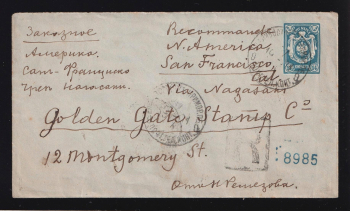 Заказное
Америка.
Санъ-Франциско
чрезъ Нагасаки.
Recommandé
N. America
San Francisco,
Cal.
Via Nagasaki
Golden Gate Stamp Co
12 Montgomery St.
R
8985
Отъ Н.